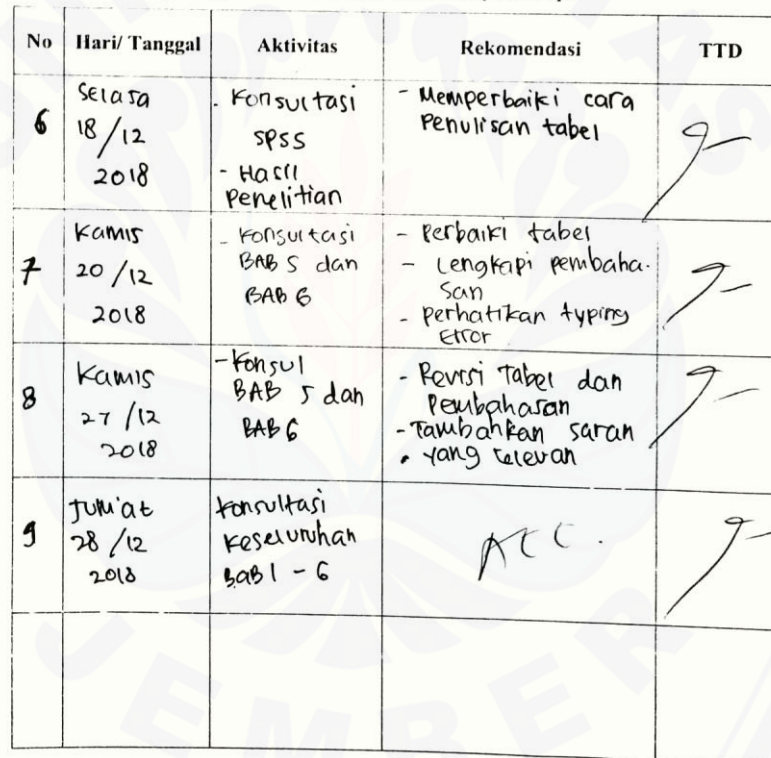 No Hari/ Tanggal Aktivitas Rekomendasi TTD
6
Selasa
18/12
2018
. Konsultasi
SPSS
- Hasil
Penelitian
- Memperbaiki cara
Penulisan tabel
7
Kamis
20/12
2018
- Konsultasi
BAB 5 dan
BAB 6
- Perbaiki tabel
- Lengkapi pembaha-
san
- Perhatikan typing
Error
8
Kamis
27/12
2018
- Konsul
BAB 5 dan
BAB 6
- Revisi Tabel dan
Pembahasan
- Tambahkan saran
. yang relevan
9
Jum'at
28/12
2018
Konsultasi
Keseluruhan
BAB 1 - 6
ACC.
JEMBER